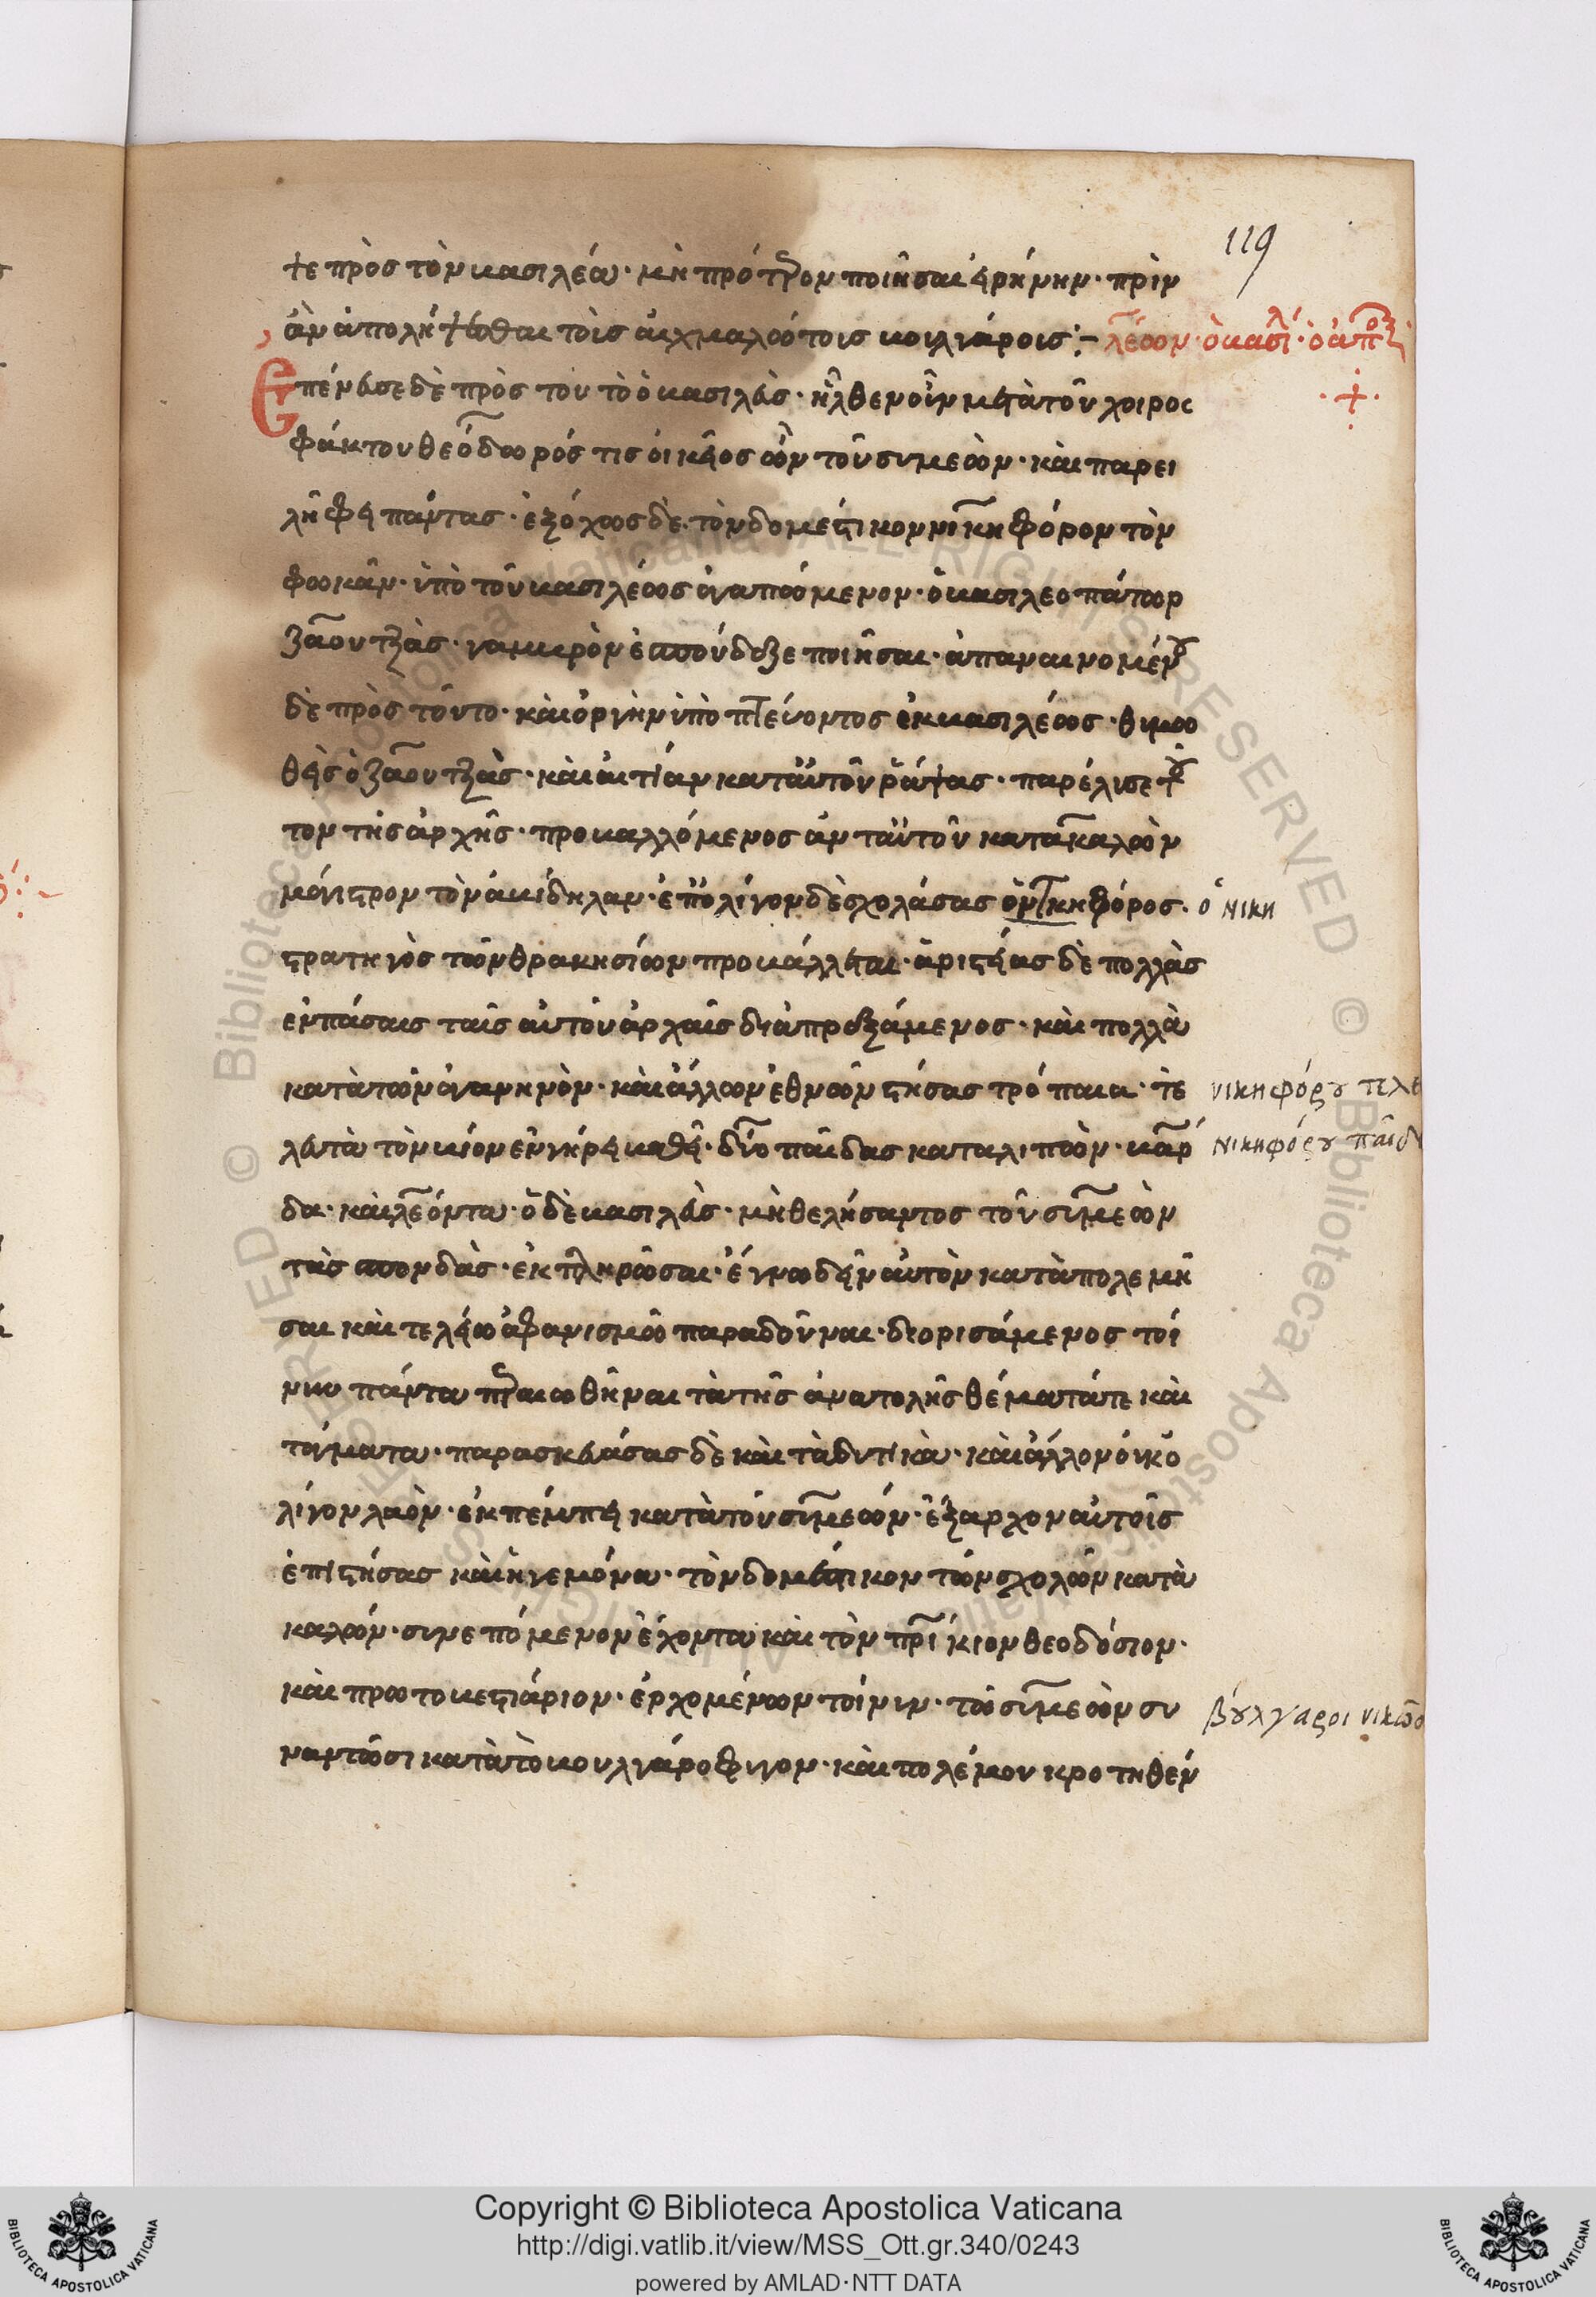 119
ψε πρὸσ τὸν βασιλέα· μὴ πρότερον ποιῆσαι εἰρήνην· πρὶν
ἂν ἀπολήψεσθαι τοὶσ αἰχμαλώτοισ βουλγάροισ :- λέων· ὁ βασιλ
Επένευσε δὲ πρὸσ τοῦτο ὁ βασιλεὺσ· ἦλθεν οὖν μετὰ τοῦ χοιροσ
φάκτου θεόδωρόσ τισ οἰκεῖοσ ὢν τοῦ συμεὼν· καὶ παρεί
ληφει πάντασ· ἐξόχωσ δὲ τὸν δομέστικον νικηφόρον τὸν
φωκᾶν· ὑπὸ τοῦ βασιλέωσ ἀγαπώμενον· ὁ βασιλεοπάτωρ
ζαουτζὰσ· γαμβρὸν ἐσπούδαζε ποιῆσαι· ἀπαναινομένου
δὲ πρὸσ τοῦτο· καὶ ὀργὴν ὑποπτεύοντοσ ἐκ βασιλέωσ· θυμω
θεὶσ ὁ ζαουτζὰσ· καὶ αἰτίαν κατ αὐτοῦ ῥάψασ· παρέλυσε τοῦ
τον τῆσ ἀρχῆσ· προβαλλόμενοσ ἀντ αὐτοῦ κατακαλὼν
μάγιστρον τὸν ἀβίδηλαν· ἐπ ὀλίγον δὲ σχολάσασ ὁ νικηφόροσ· ὁ νικη
στρατηγὸσ τῶν θρακησίων προβάλλεται· ἀριστείασ δὲ πολλὰσ
ἐν πάσαισ ταῖσ αὐτοῦ ἀρχαῖσ διαπραξάμενοσ· καὶ πολλὰ
κατὰ τῶν ἀγαρηνὸν· καὶ ἄλλων ἐθνῶν στήσασ τρόπαια· τε νικηφόρου τελε
λευτὰ τὸν βίον ἐν γήρει βαθεῖ· δύο παῖδασ καταλιπὼν· βάρ νικηφόρου παῖδ
δα· καὶ λέοντα· ὁ δὲ βασιλεὺσ· μὴ θελήσαντοσ τοῦ συμεὼν
τὰσ σπονδὰσ· ἐκπληρῶσαι· ἔγνω δεῖν αὐτὸν καταπολεμῆ
σαι καὶ τελείω ἀφανισμῶ παραδοῦναι· διορισάμενοσ τοί
νυν πάντα περαιωθῆναι τὰ τῆσ ἀνατολῆσ θέματά τε καὶ
τάγματα· παρασκευάσασ δὲ καὶ τὰ δυτικὰ· καὶ ἄλλον οὐκ ὀ
λίγον λαὸν· ἐκπέμπει κατὰ τοῦ συμεών· ἔξαρχον αὐτοῖσ
ἐπιστήσασ καὶ ἡγεμόνα· τὸν δομέστικον τῶν σχολῶν κατα
καλών· συνεπόμενον ἔχοντα καὶ τὸν πρίκιον θεοδόσιον·
καὶ πρωτοβεστιάριον· ἐρχομένων τοίνυν· τῶ συμεὼν συ βούλγαροι νικῶσ
ναντῶσι κατὰ τὸ βουλγάροφυγον· καὶ πολέμου κροτηθέν
Copyright © Biblioteca Apostolica Vaticana
http://digi.vatlib.it/view/MSS_Ott.gr.340/0243
powered by AMLAD·NTT DATA